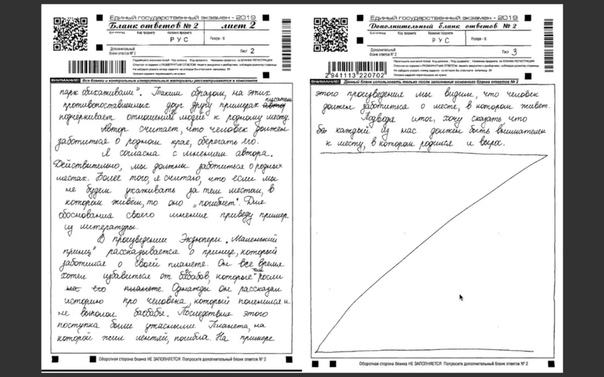 Единый государственный экзамен - 2019
Бланк ответов № 2 лист 2
РУС
Резерв - 6
Дополнительный бланк ответов № 2
Лист 2
ВНИМАНИЕ! Все бланки и контрольные измерительные материалы рассматриваются в комплекте
парк обихаживали". Таким образом, на этих
противопоставляющих друг другу примерах писатель
подчеркивает отношения людей к родному месту.
Автор считает, что человек должен
заботится о родном крае, оберегать его.
Я согласна с мнением автора.
Действительно, мы должны заботится о родных
местах. Более того, я считаю, что если мы
не будем ухаживать за тем местом, в
котором живем, то оно „погибнет". Для
обоснования своего мнения приведу пример
из литературы.
В произведении Экзюпери „Маленький
принц" рассказывается о принце, который
заботился о своей планете. Он все время
хотел избавиться от баобабов которые росли
его планете. Однажды он рассказал
историю про человека, который поленился и
не выполол баобабы. Последствия этого
поступка были ужасными. Планета, на
которой жил лентяй, погибла. На примере
Оборотная сторона бланка НЕ ЗАПОЛНЯЕТСЯ. Попросите дополнительный бланк ответов № 2
Единый государственный экзамен - 2019
Дополнительный бланк ответов № 2
РУС
Резерв - 7
Лист 3
2941113220702
ВНИМАНИЕ! Данный бланк использовать только после заполнения основного бланка ответов № 2
этого произведения мы видим, что человек
должен заботиться о месте, в котором живет.
Подводя итог, хочу сказать что
бы каждый из нас должен быть внимателен
к месту, в котором родился и вырос.
Оборотная сторона бланка НЕ ЗАПОЛНЯЕТСЯ. Попросите дополнительный бланк ответов № 2